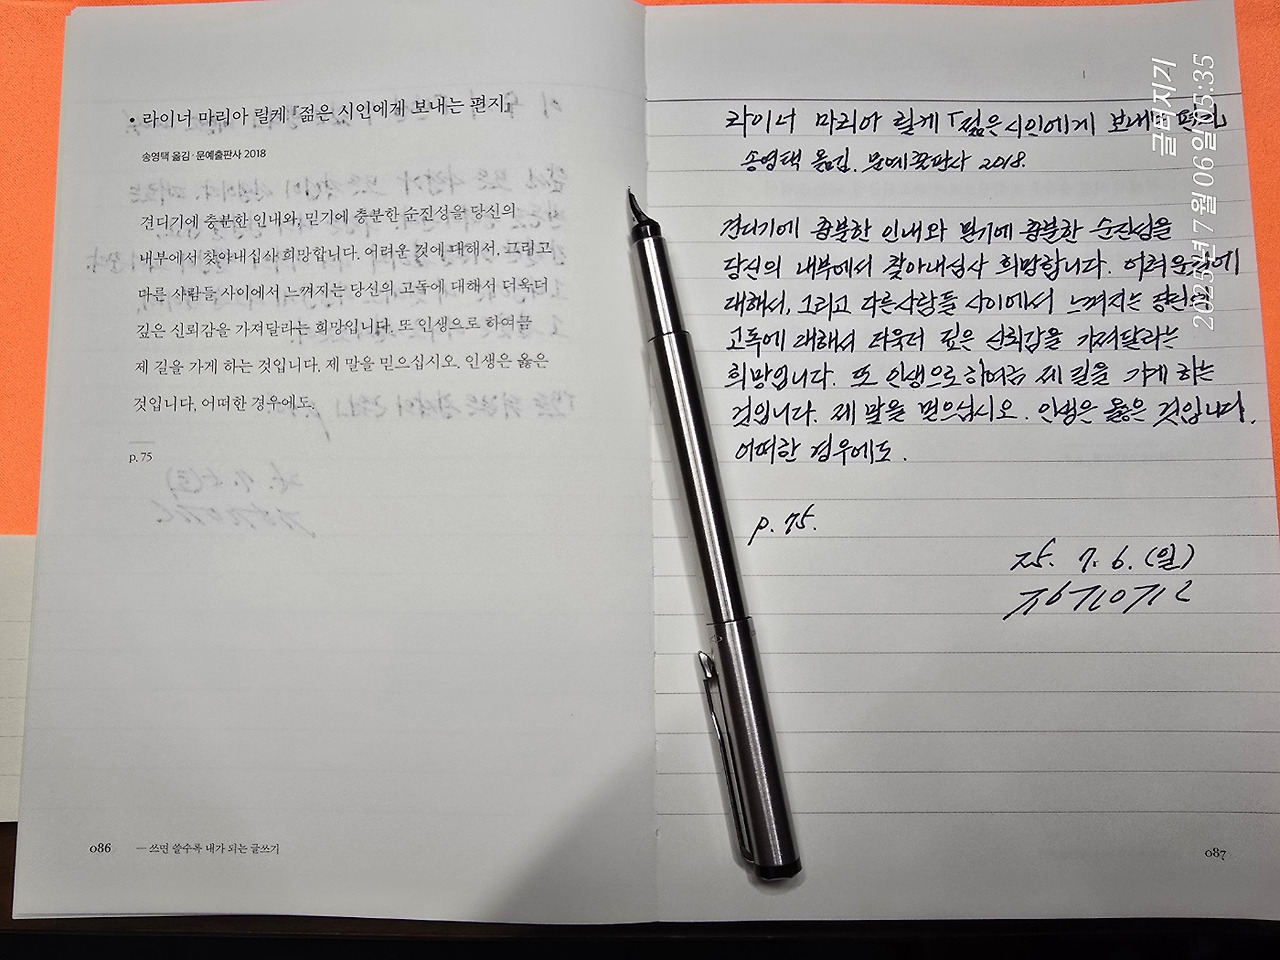 • 라이너 마리아 릴케 『젊은 시인에게 보내는 편지』
송영택 옮김 · 문예출판사 2018
견디기에 충분한 인내와, 믿기에 충분한 순진성을 당신의
내부에서 찾아내십사 희망합니다. 어려운 것에 대해서, 그리고
다른 사람들 사이에서 느껴지는 당신의 고독에 대해서 더욱더
깊은 신뢰감을 가져달라는 희망입니다. 또 인생으로 하여금
제 길을 가게 하는 것입니다. 제 말을 믿으십시오. 인생은 옳은
것입니다, 어떠한 경우에도.
p. 75
086 — 쓰면 쓸수록 내가 되는 글쓰기
라이너 마리아 릴케 「젊은 시인에게 보내는 편지」
송영택 옮김. 문예출판사 2018.
견디기에 충분한 인내와 믿기에 충분한 순진성을
당신의 내부에서 찾아내십사 희망합니다. 어려운 것에
대해서, 그리고 다른 사람들 사이에서 느껴지는 당신의
고독에 대해서 더욱더 깊은 신뢰감을 가져달라는
희망입니다. 또 인생으로 하여금 제 길을 가게 하는
것입니다. 제 말을 믿으십시오. 인생은 옳은 것입니다,
어떠한 경우에도.
p. 75.
25. 7. 6. (일)
087
글버지기
2025년 7월 06일 05:35